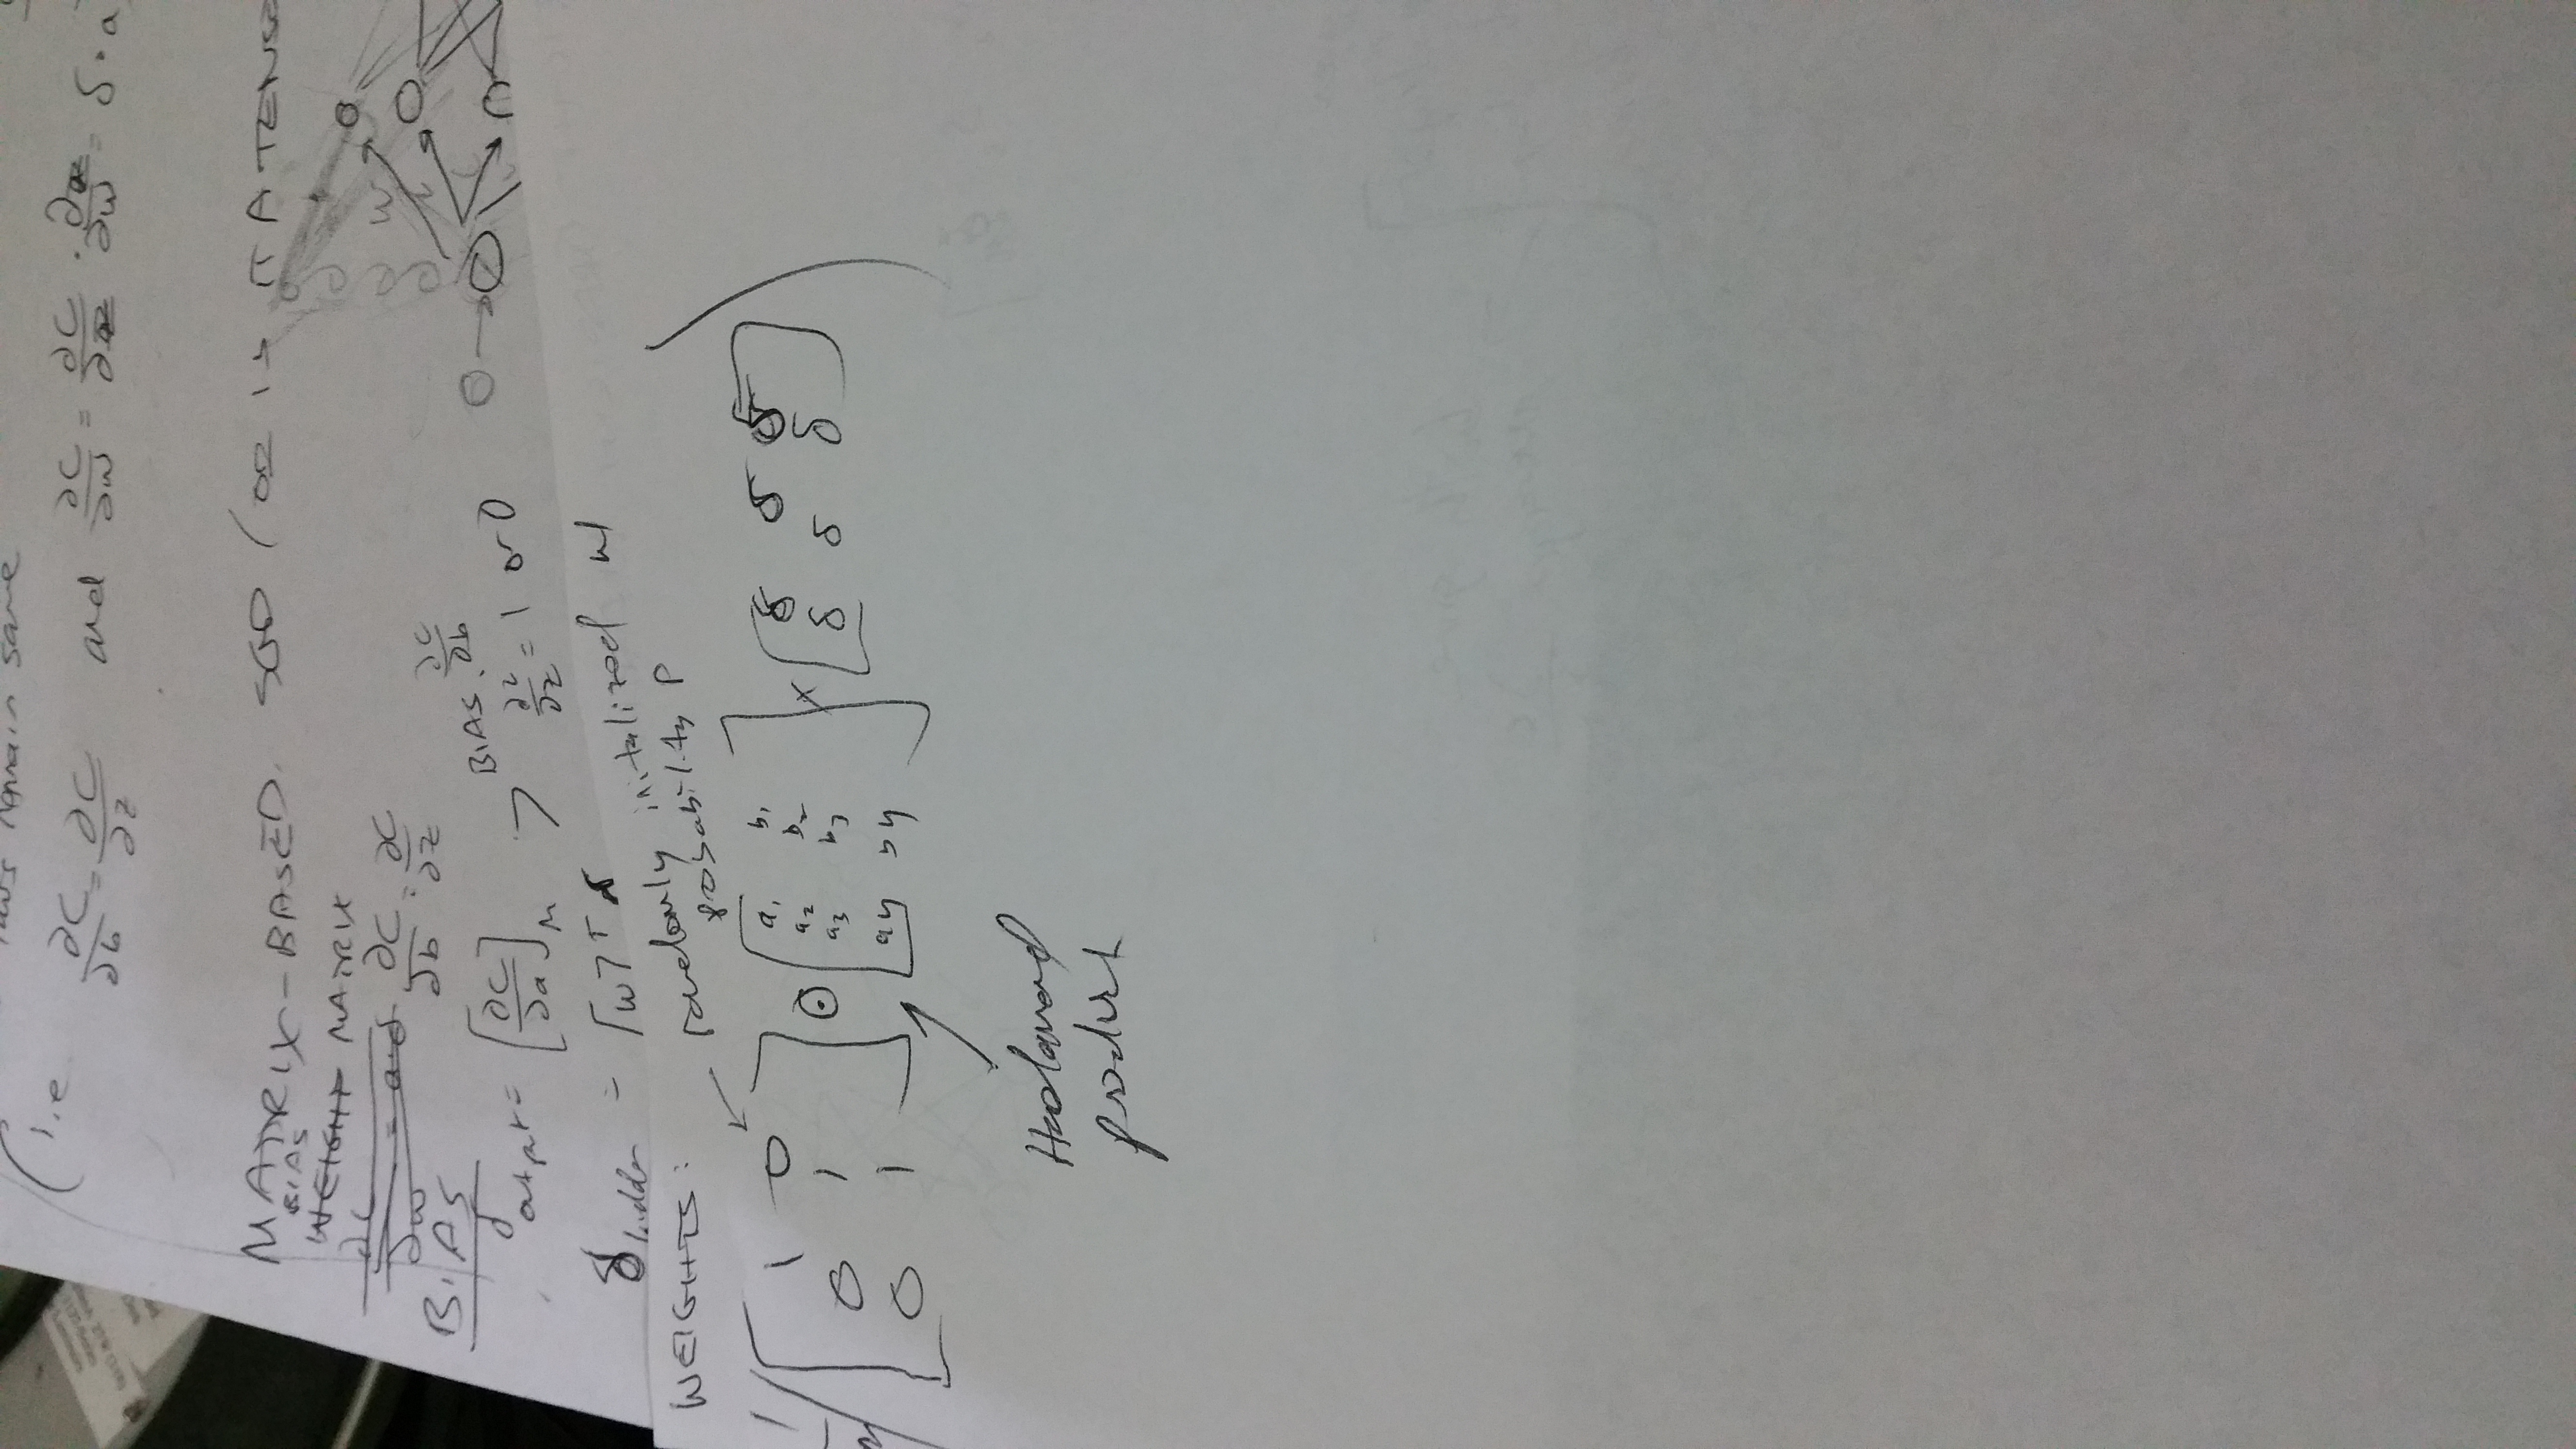 laws remain same
(i.e ∂C/∂b = ∂C/∂z and ∂C/∂w = ∂C/∂z · ∂z/∂w = δ·a
MATRIX-BASED SGD (OR IS IT A TENSO
BIAS
WEIGHT MATRIX
∂C/∂w = a·δ ∂C/∂b = ∂C/∂z
BIAS
δoutput = [∂C/∂a]M > BIAS ∂C/∂b
∂a/∂z = 1 or 0
w
δhidden = [w]ᵀ δ
WEIGHTS:
randomly initalized w/
probability P
1 0
0 1
0 1
⊙
a₁ b₁
a₂ b₂
a₃ b₃
a4 b4
×
δ δ δ
δ δ δ
Hadamard
product